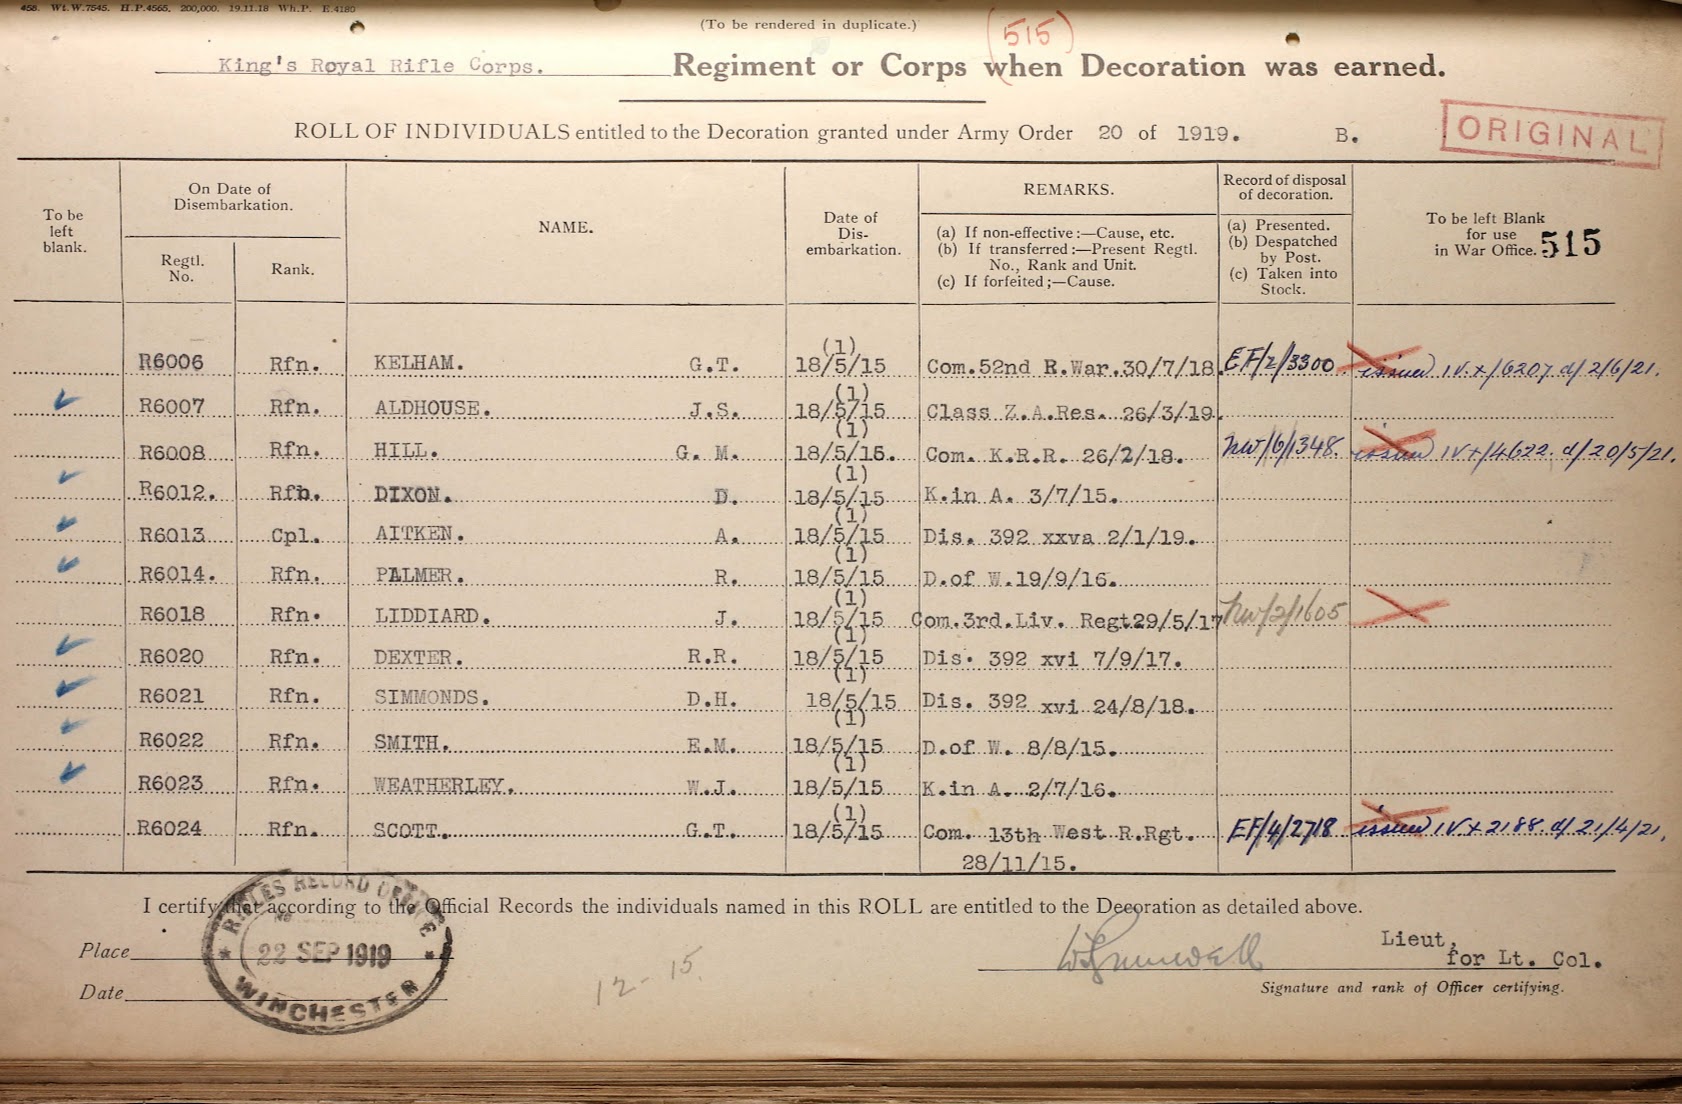 458. Wt.W.7545. H.P.4565. 200,000. 19.11.18 Wh.P. E.4180
(To be rendered in duplicate.)
(515)
King's Royal Rifle Corps. Regiment or Corps when Decoration was earned.
ROLL OF INDIVIDUALS entitled to the Decoration granted under Army Order 20 of 1919. B.
ORIGINAL
To be left blank.
On Date of Disembarkation.
Regtl. No.
Rank.
NAME.
Date of Dis-embarkation.
REMARKS.
(a) If non-effective:—Cause, etc.
(b) If transferred:—Present Regtl. No., Rank and Unit.
(c) If forfeited;—Cause.
Record of disposal of decoration.
(a) Presented.
(b) Despatched by Post.
(c) Taken into Stock.
To be left Blank for use in War Office. 515
R6006 Rfn. KELHAM. G.T. (1) 18/5/15 Com.52nd R.War.30/7/18. EF/2/3300 issued IV x/6207 d/2/6/21.
R6007 Rfn. ALDHOUSE. J.S. (1) 18/5/15 Class Z.A.Res. 26/3/19.
R6008 Rfn. HILL. G. M. (1) 18/5/15. Com. K.R.R. 26/2/18. NW/6/1348. issued IV x/4622 d/20/5/21.
R6012. Rfn. DIXON. D. (1) 18/5/15 K.in A. 3/7/15.
R6013 Cpl. AITKEN. A. (1) 18/5/15 Dis. 392 xxva 2/1/19.
R6014. Rfn. PALMER. R. (1) 18/5/15 D.of W.19/9/16.
R6018 Rfn. LIDDIARD. J. (1) 18/5/15 Com.3rd.Liv. Regt29/5/17 NW/2/1605
R6020 Rfn. DEXTER. R.R. (1) 18/5/15 Dis. 392 xvi 7/9/17.
R6021 Rfn. SIMMONDS. D.H. (1) 18/5/15 Dis. 392 xvi 24/8/18.
R6022 Rfn. SMITH. E.M. (1) 18/5/15 D.of W. 8/8/15.
R6023 Rfn. WEATHERLEY. W.J. (1) 18/5/15 K.in A. 2/7/16.
R6024 Rfn. SCOTT. G.T. (1) 18/5/15 Com. 13th West R.Rgt. EF/4/2718 issued IV x 2188 d/21/4/21.
28/11/15.
I certify that according to the Official Records the individuals named in this ROLL are entitled to the Decoration as detailed above.
RIFLES RECORD OFFICE
22 SEP 1919
WINCHESTER
Place
Date
12-15.
Lieut,
for Lt. Col.
Signature and rank of Officer certifying.